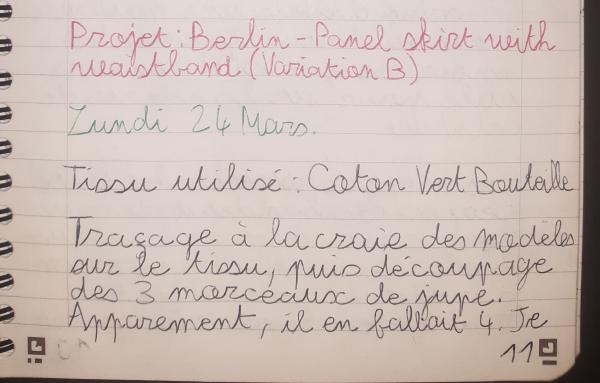 Projet : Berlin - Panel skirt with
waistband (Variation B)
Lundi 24 Mars.
Tissu utilisé : Coton Vert Bouteille
Traçage à la craie des modèles
sur le tissu, puis découpage
des 3 morceaux de jupe.
Apparement, il en fallait 4. Je
11